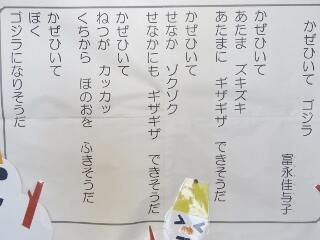 かぜひいて ゴジラ
富永佳与子
かぜひいて
あたま ズキズキ
あたまに ギザギザ できそうだ
かぜひいて
せなか ゾクゾク
せなかにも ギザギザ できそうだ
かぜひいて
ねつが カッカッ
くちから ほのおを ふきそうだ
かぜひいて
ぼく
ゴジラになりそうだ